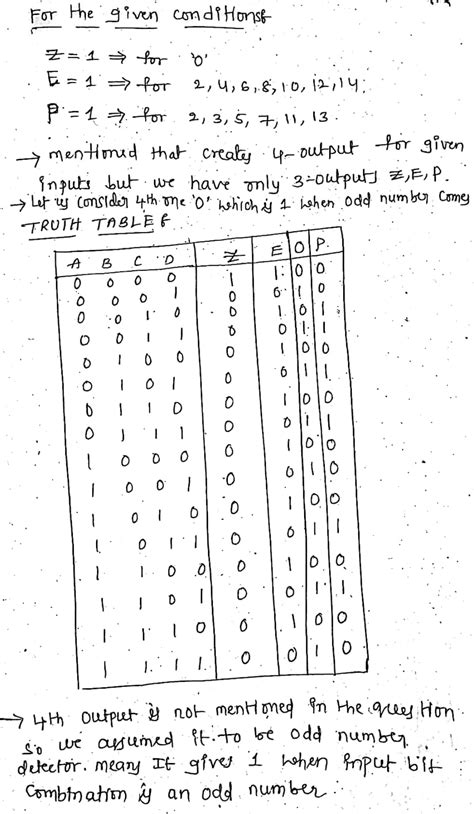 For the given conditions
Z = 1 ⇒ for '0'
E = 1 ⇒ for 2, 4, 6, 8, 10, 12, 14.
P = 1 ⇒ for 2, 3, 5, 7, 11, 13.
→ mentioned that creates 4-output for given
inputs but we have only 3-outputs Z, E, P.
→ Let us consider 4th one 'O' which is 1 when odd number comes
TRUTH TABLE
A B C D Z E O P.
0 0 0 0 1 1 0 0
0 0 0 1 0 0 1 0
0 0 1 0 0 1 0 1
0 0 1 1 0 0 1 1
0 1 0 0 0 1 0 0
0 1 0 1 0 0 1 1
0 1 1 0 0 1 0 0
0 1 1 1 0 0 1 1
1 0 0 0 0 1 0 0
1 0 0 1 0 0 1 0
1 0 1 0 0 1 0 0
1 0 1 1 0 0 1 1
1 1 0 0 0 1 0 0
1 1 0 1 0 0 1 1
1 1 1 0 0 1 0 0
1 1 1 1 0 0 1 0
→ 4th output is not mentioned in the question
so we assumed it to be odd number
detector. means It gives 1 when input bit
Combination is an odd number.